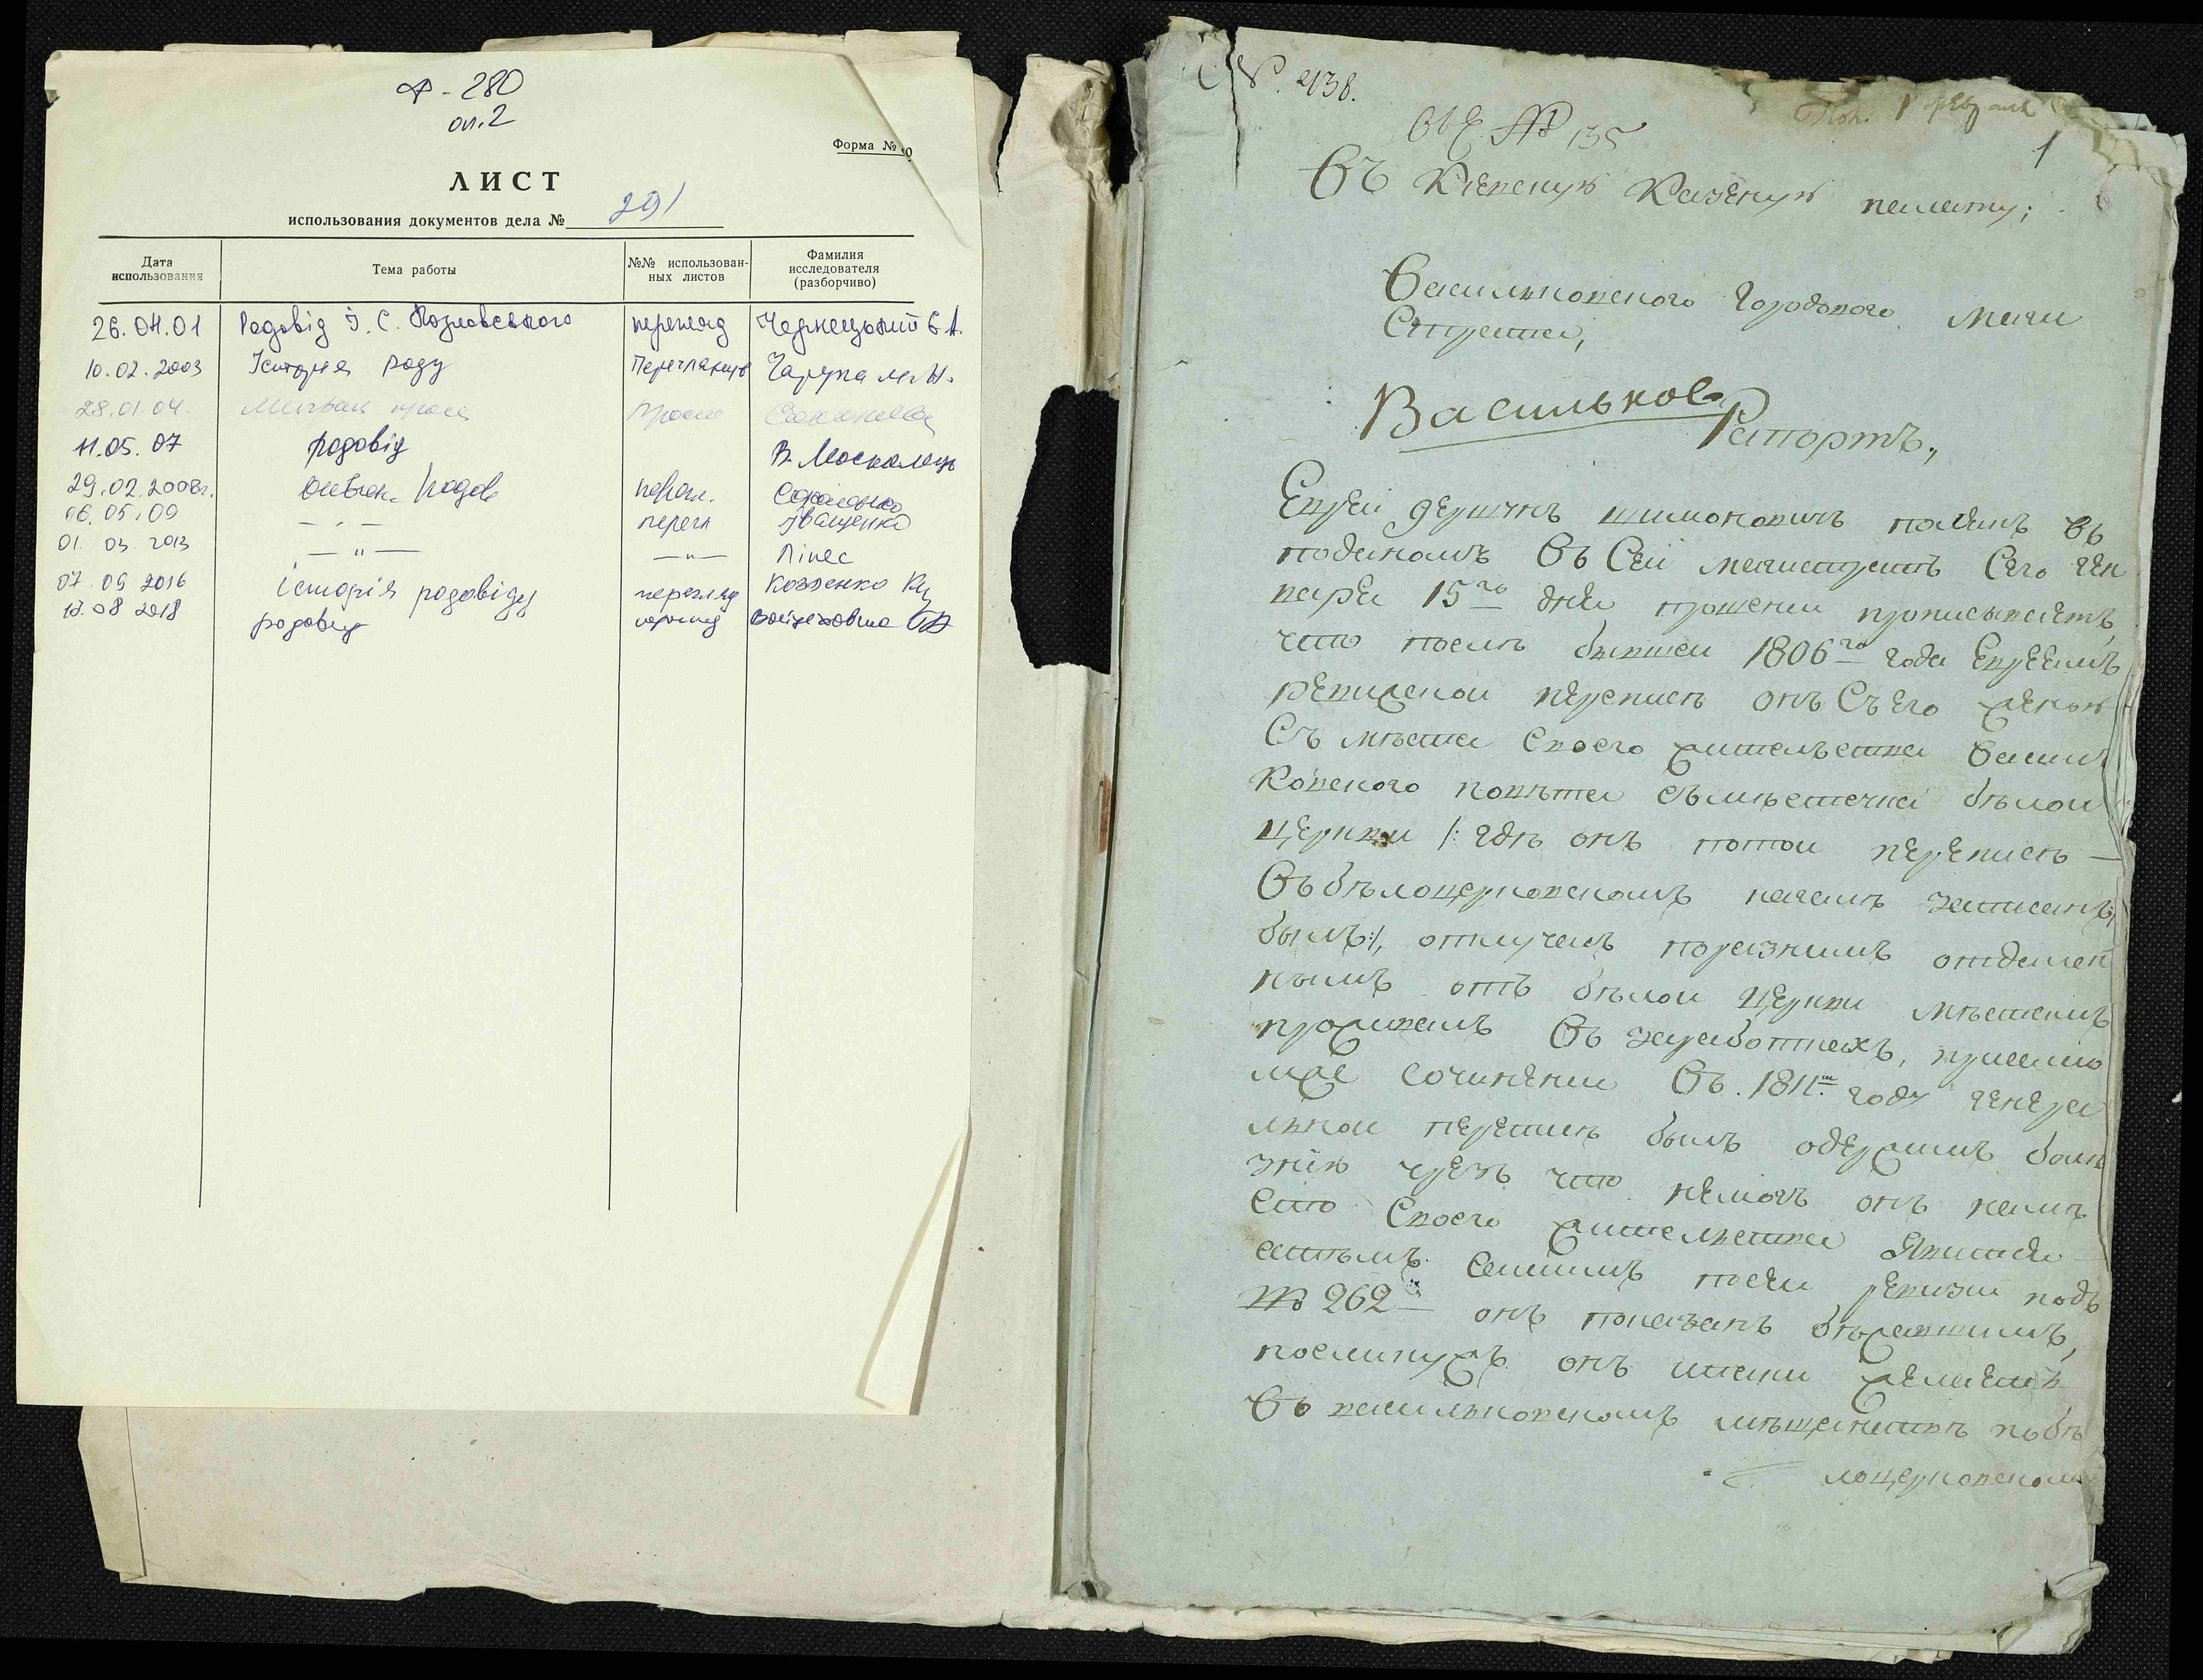 Ф-280
оп.2
Форма №
ЛИСТ
использования документов дела № 291
Дата использования
Тема работы
№№ использован-
ных листов
Фамилия
исследователя
(разборчиво)
26.04.01 Родовід І. С. Козловського перегляд Чернецький Є.А.
10.02.2003 Історія роду
28.01.04.
11.05.07 родовід В. Москалець
29.02.2008г. перегл.
06.05.09 — " — перегл Іващенко
01.03.2013 — " — — " — Лінес
07.09 2016 історія родовіду перегляд
18.08 2018 родовід
№. 2138.
1
135
Въ Кіевскую Казеную палату;
Васильковского Городового Маги
Страта,
Васильков
Рапортъ,
Еврей Дершкъ Шимоновичъ
поданомъ въ Сей магистратъ Сего ген
варя 15го дня прошении прописываетъ,
что послѣ бывшей 1806го года Евреямъ
ревизской переписѣ онъ Съ его женою
Съ мѣста Своего жительства Василь
Ковского повѣта съ мѣстечка бѣлой
церкви /: гдѣ онъ потой переписѣ —
Въ бѣлоцерковскомъ кагалѣ записанъ
былъ:/, отлучась поразнимъ отдален
нымъ отъ бѣлой церкви мѣстамъ
проживалъ Въ заработкахъ, присамо
мже сочинении Въ. 1811м году генера
льной переписѣ былъ одержимъ боле
знію чрезъ что немогъ онъ намѣ
сто Своего жительства Явится
подъ
№ 262 онъ показанъ бѣжавшимъ,
поелику жъ онъ
Въ васильковскомъ мѣщанствѣ
лоцерковском